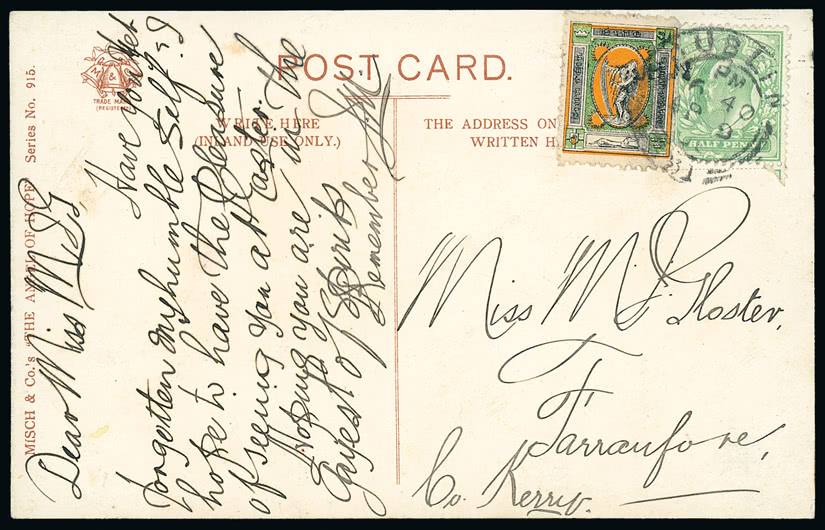 POST CARD.
WRITE HERE
(INLAND USE ONLY.)
THE ADDRESS ON
WRITTEN H
TRADE MARK
(REGISTERED)
MISCH & Co.'s "THE ANGEL OF HOPE" Series No. 915.
Dear Miss M
Have you yet
forgotten my humble self? I
hope to have the pleasure
of seeing you at Easter.
Hoping you are in the
Gayest of Spirits
Remember
DUBLIN
PM
4
9
HALF PENNY
Miss M. J. Gloster,
Farranfore,
Co. Kerry.